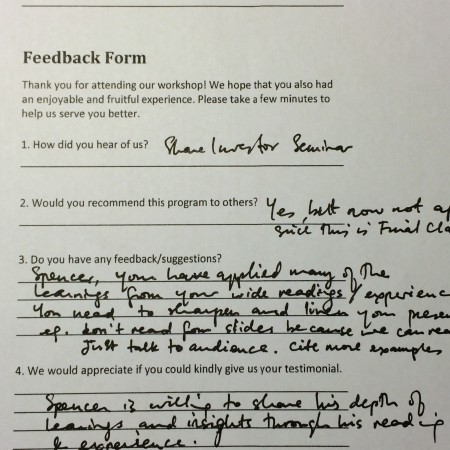 Feedback Form
Thank you for attending our workshop! We hope that you also had
an enjoyable and fruitful experience. Please take a few minutes to
help us serve you better.
1. How did you hear of us? Share Investor Seminar
2. Would you recommend this program to others? Yes, but now not
since this is Final
3. Do you have any feedback/suggestions?
Spencer, you have applied many of the
learnings from your wide readings / experienc
You need to sharpen and liven your presen
eg. don't read from slides because we can rea
Just talk to audience. Cite more examples
4. We would appreciate if you could kindly give us your testimonial.
Spencer is willing to share his depth of
learnings and insights through his reading
& experience.